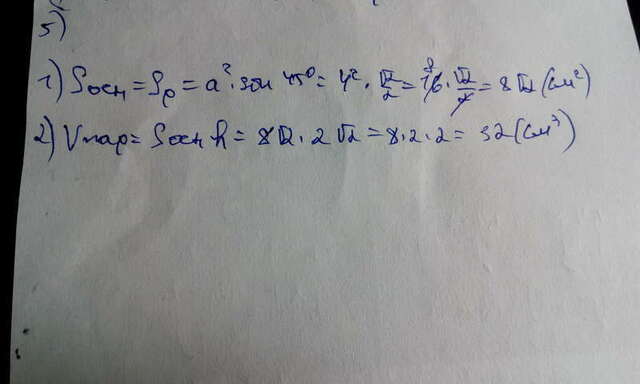 5)
1) Sосн = Sр = a² · sin 45° = 4² · √2/2 = 16 · √2/2 = 8√2 (см²)
2) Vпар = Sосн h = 8√2 · 2√2 = 8 · 2 · 2 = 32 (см³)